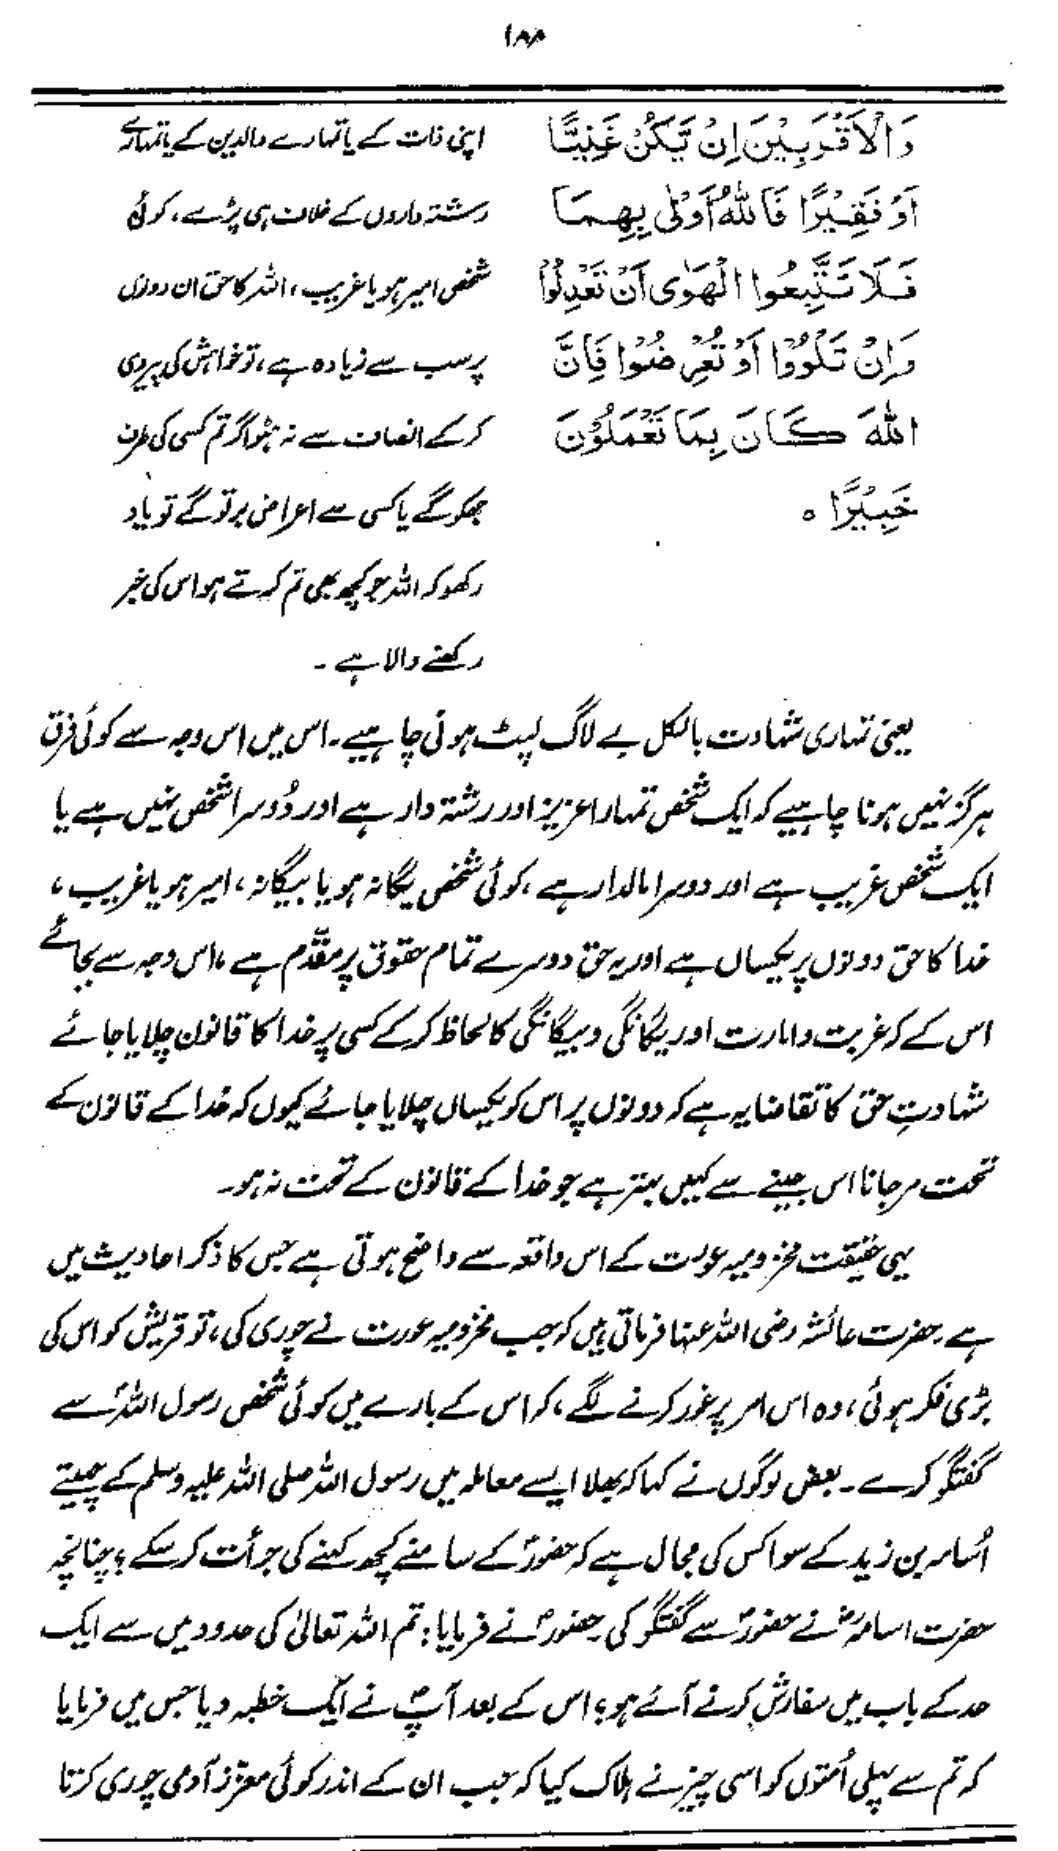 ۱۸۸
وَالْاَقْرَبِيْنَ اِنْ يَّكُنْ غَنِيًّا
اَوْ فَقِيْرًا فَاللّٰهُ اَوْلٰى بِهِمَا
فَلَا تَتَّبِعُوا الْهَوٰى اَنْ تَعْدِلُوْا
وَاِنْ تَلْوٗا اَوْ تُعْرِضُوْا فَاِنَّ
اللّٰهَ كَانَ بِمَا تَعْمَلُوْنَ
خَبِيْرًا ه
اپنی ذات کے یا تمہارے والدین کے یا تمہارے
رشتہ داروں کے خلاف ہی پڑے، کوئی
شخص امیر ہو یا غریب، اللہ کا حق ان دونوں
پر سب سے زیادہ ہے، تو خواہش کی پیروی
کرکے انصاف سے نہ ہٹو اگر تم کسی کی طرف
جھکو گے یا کسی سے اعراض برتو گے تو یاد
رکھو کہ اللہ جو کچھ بھی تم کرتے ہو اس کی خبر
رکھنے والا ہے ۔
یعنی تمہاری شہادت بالکل بے لاگ لپٹ ہونی چاہیے۔ اس میں اس وجہ سے کوئی فرق
ہرگز نہیں ہونا چاہیے کہ ایک شخص تمہارا عزیز اور رشتہ دار ہے اور دُوسرا شخص نہیں ہے یا
ایک شخص غریب ہے اور دوسرا مالدار ہے، کوئی شخص یگانہ ہو یا بیگانہ، امیر ہو یا غریب،
خدا کا حق دونوں پر یکساں ہے اور یہ حق دوسرے تمام حقوق پر مقدّم ہے، اس وجہ سے بجائے
اس کے کہ غربت و امارت اور یگانگی و بیگانگی کا لحاظ کرکے کسی پر خدا کا قانون چلایا جائے
شہادتِ حق کا تقاضا یہ ہے کہ دونوں پر اس کو یکساں چلایا جائے کیوں کہ خدا کے قانون کے
تحت مرجانا اس جینے سے کہیں بہتر ہے جو خدا کے قانون کے تحت نہ ہو۔
یہی حقیقت مخزومیہ عورت کے اس واقعہ سے واضح ہوتی ہے جس کا ذکر احادیث میں
ہے۔ حضرت عائشہ رضی اللہ عنہا فرماتی ہیں کہ جب مخزومیہ عورت نے چوری کی، تو قریش کو اس کی
بڑی فکر ہوئی، وہ اس امر پر غور کرنے لگے، کہ اس کے بارے میں کوئی شخص رسول اللہؐ سے
گفتگو کرے۔ بعض لوگوں نے کہا کہ بھلا ایسے معاملہ میں رسول اللہ صلی اللہ علیہ وسلم کے چہیتے
اُسامہ بن زید کے سوا کس کی مجال ہے کہ حضورؐ کے سامنے کچھ کہنے کی جرأت کر سکے؟ چنانچہ
حضرت اسامہؓ نے حضورؐ سے گفتگو کی۔ حضورؐ نے فرمایا: تم اللہ تعالیٰ کی حدود میں سے ایک
حد کے باب میں سفارش کرنے آئے ہو؟ اس کے بعد آپؐ نے ایک خطبہ دیا جس میں فرمایا
کہ تم سے پہلی اُمتوں کو اسی چیز نے ہلاک کیا کہ جب ان کے اندر کوئی معزّز آدمی چوری کرتا